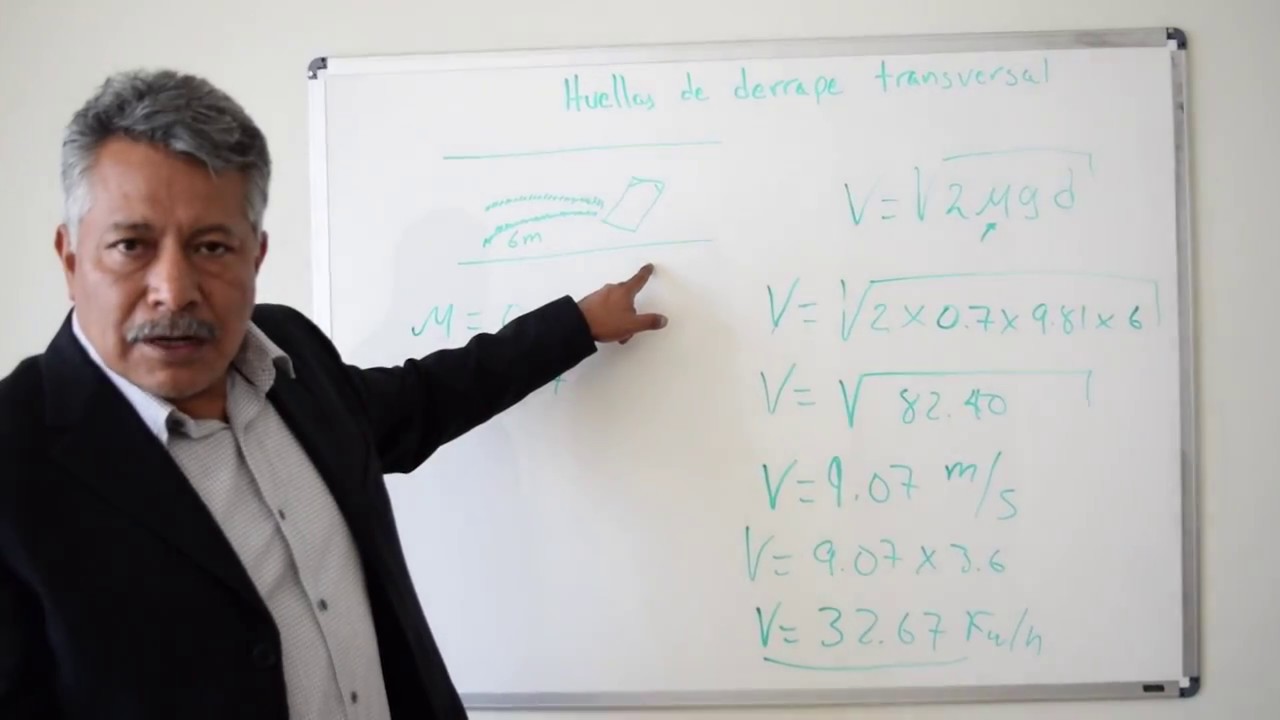 Huellas de derrape transversal
6m
M =
V = √2 μ g d
V = √2 x 0.7 x 9.81 x 6
V = √82.40
V = 9.07 m/s
V = 9.07 x 3.6
V = 32.67 Km/h